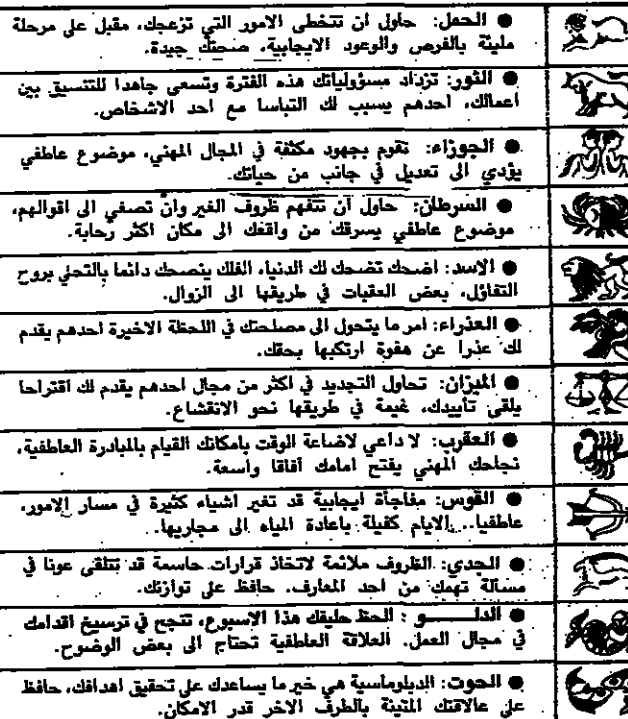 ● الحمل: حاول ان تتخطى الامور التي تزعجك، مقبل على مرحلة
مليئة بالفرص والوعود الايجابية، صحتك جيدة.
● الثور: تزداد مسؤولياتك هذه الفترة وتسعى جاهدا للتنسيق بين
اعمالك، احدهم يسبب لك التباسا مع احد الاشخاص.
● الجوزاء: تقوم بجهود مكثفة في المجال المهني، موضوع عاطفي
يؤدي الى تعديل في جانب من حياتك.
● السرطان: حاول ان تتفهم ظروف الغير وان تصغي الى اقوالهم،
موضوع عاطفي يسرقك من واقعك الى مكان اكثر رحابة.
● الاسد: اضحك تضحك لك الدنيا، الفلك ينصحك دائما بالتحلي بروح
التفاؤل، بعض العقبات في طريقها الى الزوال.
● العذراء: امر ما يتحول الى مصلحتك في اللحظة الاخيرة احدهم يقدم
لك عذرا عن هفوة ارتكبها بحقك.
● الميزان: تحاول التجديد في اكثر من مجال احدهم يقدم لك اقتراحا
يلقى تأييدك، غيمة في طريقها نحو الانقشاع.
● العقرب: لا داعي لاضاعة الوقت بامكانك القيام بالمبادرة العاطفية،
نجاحك المهني يفتح امامك آفاقا واسعة.
● القوس: مفاجأة ايجابية قد تغير اشياء كثيرة في مسار الامور،
عاطفيا.. الايام كفيلة باعادة المياه الى مجاريها.
● الجدي: الظروف ملائمة لاتخاذ قرارات حاسمة قد تتلقى عونا في
مسألة تهمك من احد المعارف، حافظ على توازنك.
● الدلـــــو: الحظ حليفك هذا الاسبوع، تنجح في ترسيخ اقدامك
في مجال العمل. العلاقة العاطفية تحتاج الى بعض الوضوح.
● الحوت: الديلوماسية هي خير ما يساعدك على تحقيق اهدافك، حافظ
على عالاقتك المتينة بالطرف الاخر قدر الامكان.